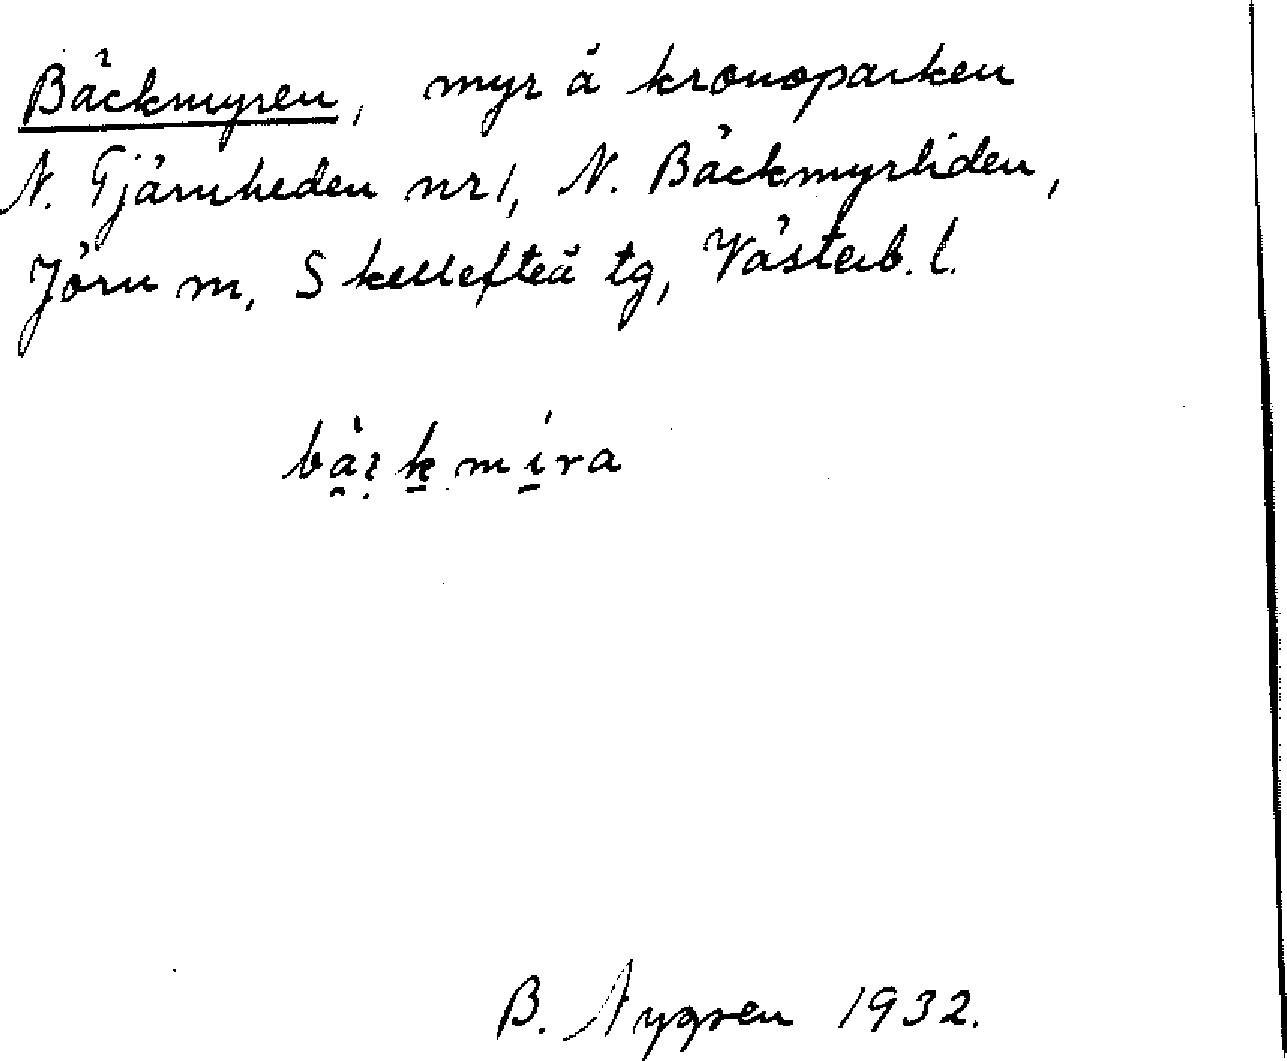 Bäckmyren, myr å kronoparken
N. Tjärnheden nr 1, N. Bäckmyrliden,
Jörn sn, Skellefteå tg, Västerb. l.
B. Nygren 1932.